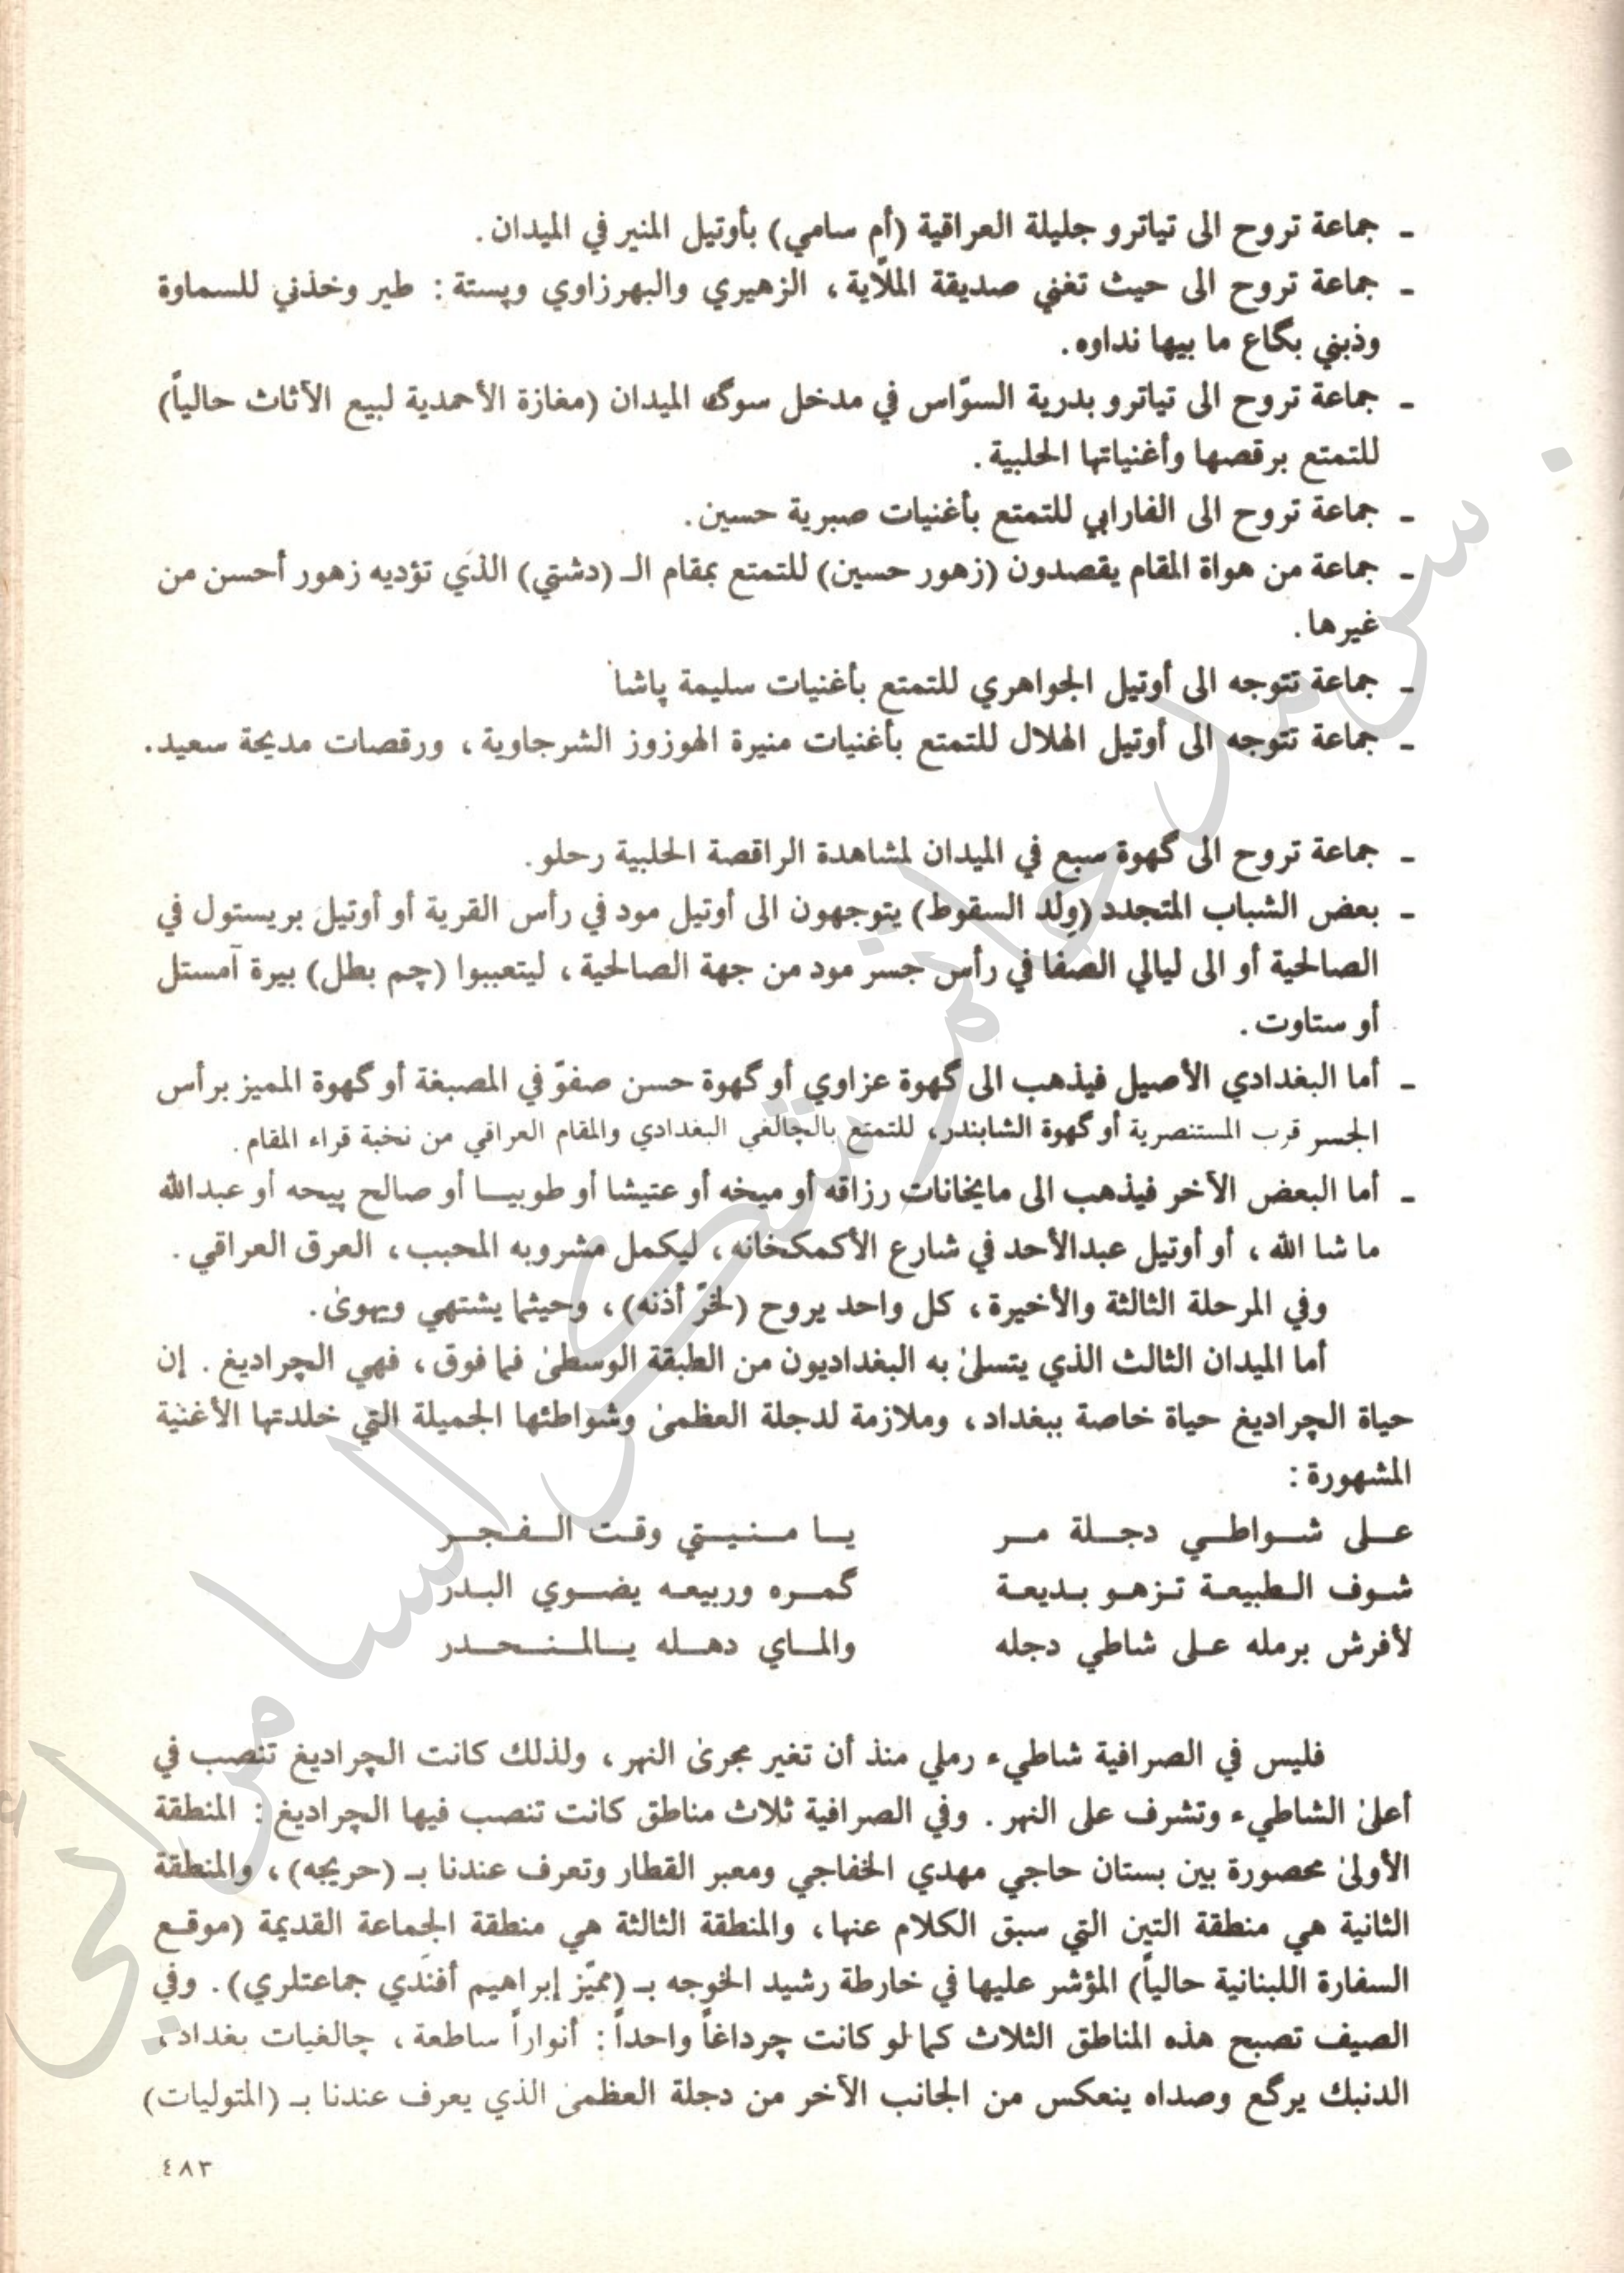 - جماعة تروح الى تياترو جليلة العراقية (أم سامي) بأوتيل المنير في الميدان.
- جماعة تروح الى حيث تغني صديقة الملّاية، الزهيري والبهرزاوي وپستة: طير وخذني للسماوة
وذبني بگاع ما بيها نداوه.
- جماعة تروح الى تياترو بدرية السوّاس في مدخل سوگ الميدان (مغازة الأحمدية لبيع الأثاث حالياً)
للتمتع برقصها وأغنياتها الحلبية.
- جماعة تروح الى الفارابي للتمتع بأغنيات صبرية حسين.
- جماعة من هواة المقام يقصدون (زهور حسين) للتمتع بمقام الـ (دشتي) الذي تؤديه زهور أحسن من
غيرها.
- جماعة تتوجه الى أوتيل الجواهري للتمتع بأغنيات سليمة پاشا
- جماعة تتوجه الى أوتيل الهلال للتمتع بأغنيات منيرة الهوزوز الشرجاوية، ورقصات مديحة سعيد.
- جماعة تروح الى گهوة سبع في الميدان لمشاهدة الراقصة الحلبية رحلو.
- بعض الشباب المتجدد (وِلد السقوط) يتوجهون الى أوتيل مود في رأس القرية أو أوتيل بريستول في
الصالحية أو الى ليالي الصفا في رأس جسر مود من جهة الصالحية، ليتعببوا (چم بطل) بيرة آمستل
أو ستاوت.
- أما البغدادي الأصيل فيذهب الى گهوة عزاوي أو گهوة حسن صفوّ في المصبغة أو گهوة المميز برأس
الجسر قرب المستنصرية أو گهوة الشابندر، للتمتع بالچالغي البغدادي والمقام العراقي من نخبة قراء المقام.
- أما البعض الآخر فيذهب الى مايخانات رزاقه أو ميخه أو عتيشا أو طوبيا أو صالح پيحه أو عبدالله
ما شا الله، أو أوتيل عبدالأحد في شارع الأكمكخانه، ليكمل مشروبه المحبب، العرق العراقي.
وفي المرحلة الثالثة والأخيرة، كل واحد يروح (لخرّ أذنه)، وحيثما يشتهي ويهوىٰ.
أما الميدان الثالث الذي يتسلىٰ به البغداديون من الطبقة الوسطىٰ فما فوق، فهي الچراديغ. إن
حياة الچراديغ حياة خاصة ببغداد، وملازمة لدجلة العظمىٰ وشواطئها الجميلة التي خلدتها الأغنية
المشهورة:
عـلى شـواطـي دجـلة مـر يـا مـنـيـتي وقـت الـفـجـر
شـوف الـطبيعـة تـزهـو بـديعـة گمـره وربيعـه يضـوي البـدر
لأفرش برمله عـلى شاطي دجله والمـاي دهـله يـالمـنـحـدر
فليس في الصرافية شاطيء رملي منذ أن تغير مجرىٰ النهر، ولذلك كانت الچراديغ تنصب في
أعلىٰ الشاطيء وتشرف على النهر. وفي الصرافية ثلاث مناطق كانت تنصب فيها الچراديغ: المنطقة
الأولىٰ محصورة بين بستان حاجي مهدي الخفاجي ومعبر القطار وتعرف عندنا بـ (حريجه)، والمنطقة
الثانية هي منطقة التين التي سبق الكلام عنها، والمنطقة الثالثة هي منطقة الجماعة القديمة (موقع
السفارة اللبنانية حالياً) المؤشر عليها في خارطة رشيد الخوجه بـ (مميّز إبراهيم أفندي جماعتلري). وفي
الصيف تصبح هذه المناطق الثلاث كما لو كانت چرداغاً واحداً: أنواراً ساطعة، چالغيات بغداد،
الدنبك يرگع وصداه ينعكس من الجانب الآخر من دجلة العظمىٰ الذي يعرف عندنا بـ (المتوليات)
٤٨٣